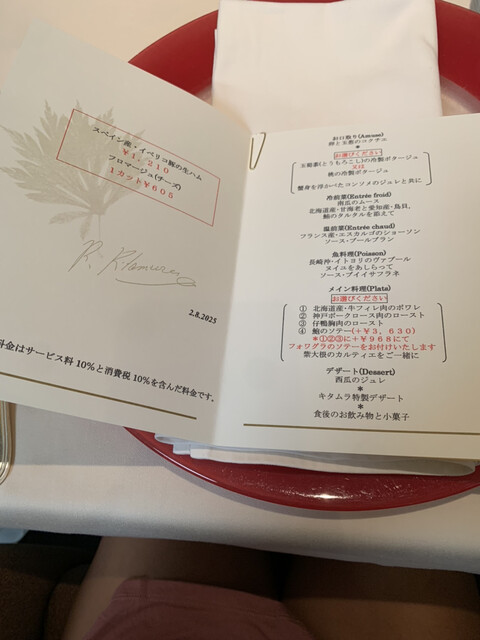 スペイン産・イベリコ豚の生ハム
¥1,210
フロマージュ(チーズ)
1カット¥605
2.8.2025
料金はサービス料10%と消費税10%を含んだ料金です。
お口取り(Amuse)
鮪と玉葱のコクテェ
＊
お選びください
玉蜀黍(とうもろこし)の冷製ポタージュ
又は
桃の冷製ポタージュ
蟹身を浮かべたコンソメのジュレと共に
冷前菜(Entrée froid)
南瓜のムース
北海道産・甘海老と愛知産・鳥貝、
鮪のタルタルを添えて
温前菜(Entrée chaud)
フランス産・エスカルゴのショーソン
ソース・ブールブラン
魚料理(Poisson)
長崎沖・イトヨリのヴァプール
ヌイユをあしらって
ソース・ブイイサフラネ
メイン料理(Plats)
お選びください
① 北海道産・牛フィレ肉のポワレ
② 神戸ポークロース肉のロースト
③ 仔鴨胸肉のロースト
④ 鮑のソテー(+¥3,630)
＊①②③に+¥968にて
フォワグラのソテーをお付けいたします
葉大根のカルティエをご一緒に
デザート(Dessert)
西瓜のジュレ
＊
キタムラ特製デザート
＊
食後のお飲み物と小菓子